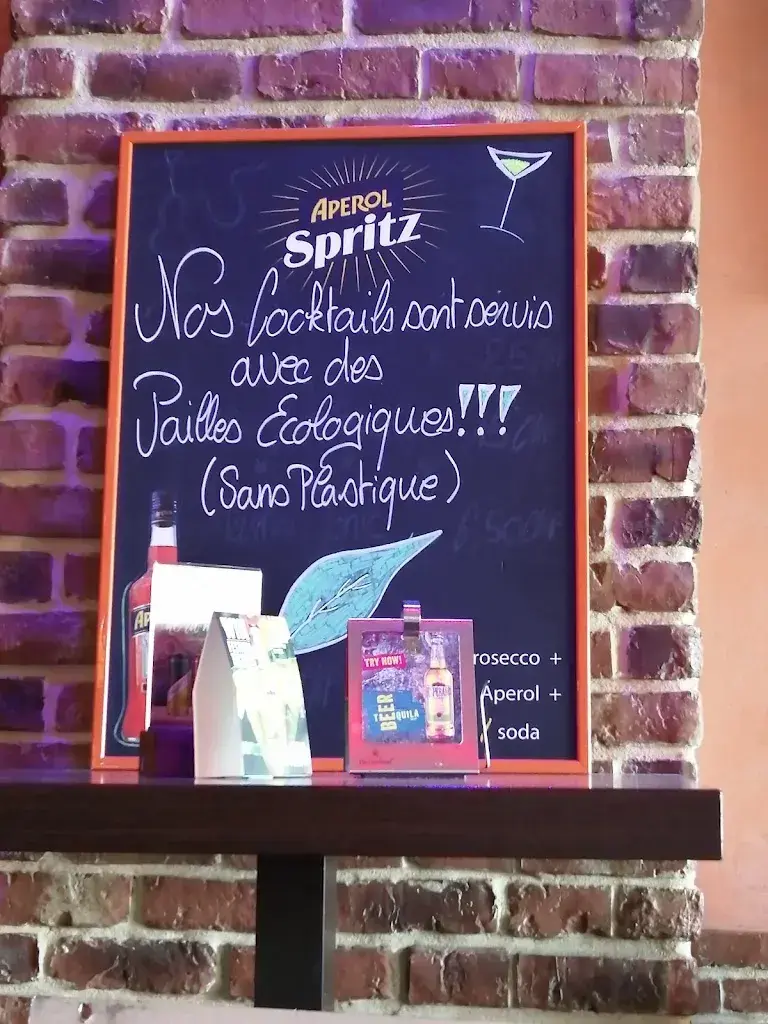 APEROL
Spritz
Nos Cocktails sont servis
avec des
Pailles Ecologiques!!!
(Sans Plastique)
AP
TRY NOW!
BEER
TEQUILA
rosecco +
Aperol +
soda